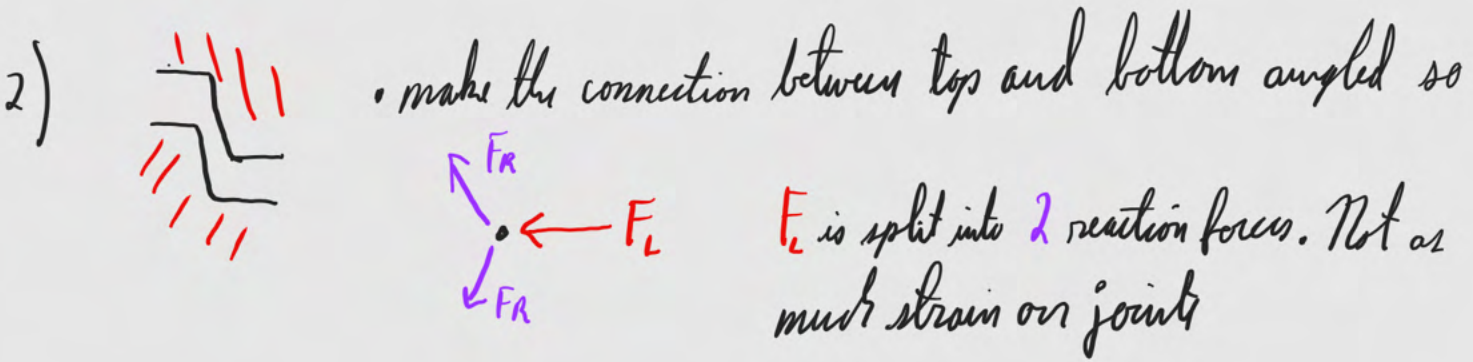 2)
• make the connection between top and bottom angled so
F_R
F_L
F_L is split into 2 reaction forces. Not as
F_R
much strain on joints